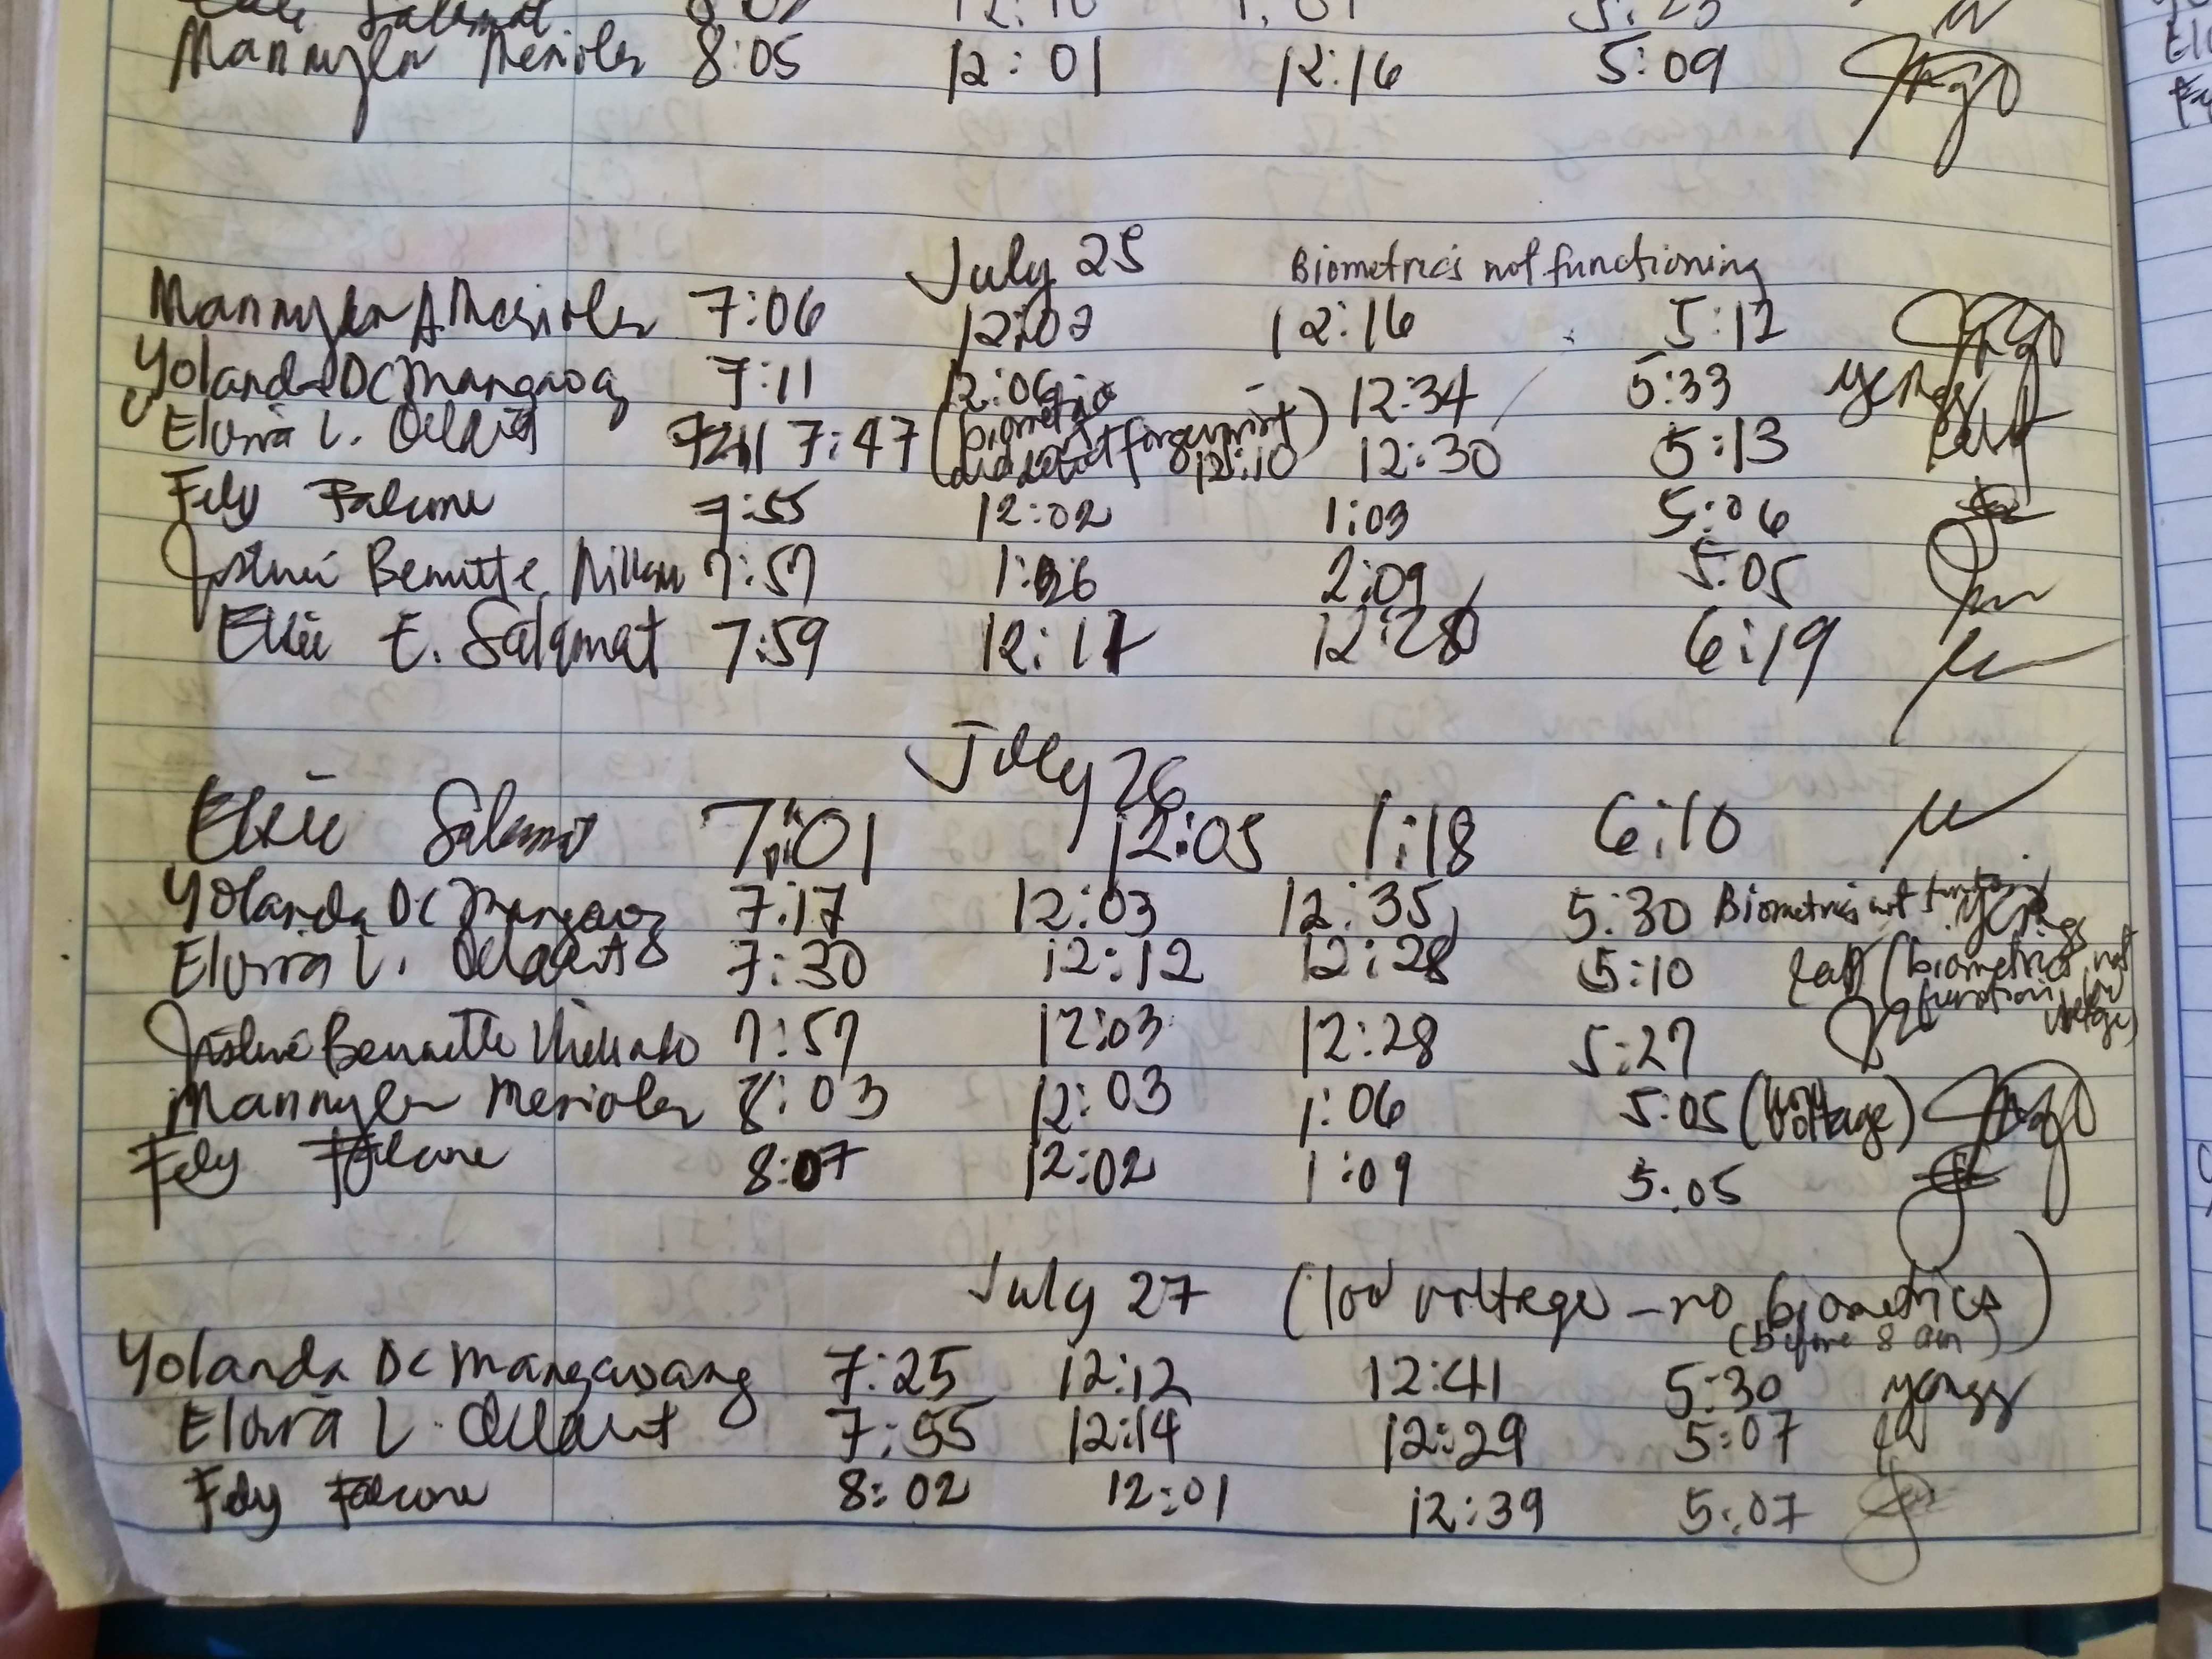 Salamat 12:10 1:01 5:23
Mannylen Mesioles 8:05 12:01 12:16 5:09
July 25 Biometrics not functioning
Mannylen A. Mesioles 7:06 12:02 12:16 5:12
Yolanda DC Mangawang 7:11 12:06 12:34 5:33
Elvira L. 7:47 (biometrics did detect fingerprint) 12:10 12:30 5:13
Fely Falcone 7:55 12:02 1:03 5:06
Justine Bennette 7:57 2:09 5:05
Elsie E. Salamat 7:59 12:17 12:28 6:19
July 26
Elsie Salamat 7:01 12:05 1:18 6:10
Yolanda DC Mangawang 7:17 12:03 12:35 5:30 Biometrics not function
Elvira L. 7:30 12:12 12:28 5:10 (biometrics not function, low voltage)
Justine Bennette 7:57 12:03 12:28 5:27
Mannylen Mesioles 8:03 12:03 1:06 5:05 (low voltage)
Fely Falcone 8:07 12:02 1:09 5:05
July 27 (low voltage - no biometrics)
(before 8 am)
Yolanda DC Mangawang 7:25 12:12 12:41 5:30 yongs
Elvira L. 7:55 12:14 12:29 5:07
Fely Falcone 8:02 12:01 12:39 5:07